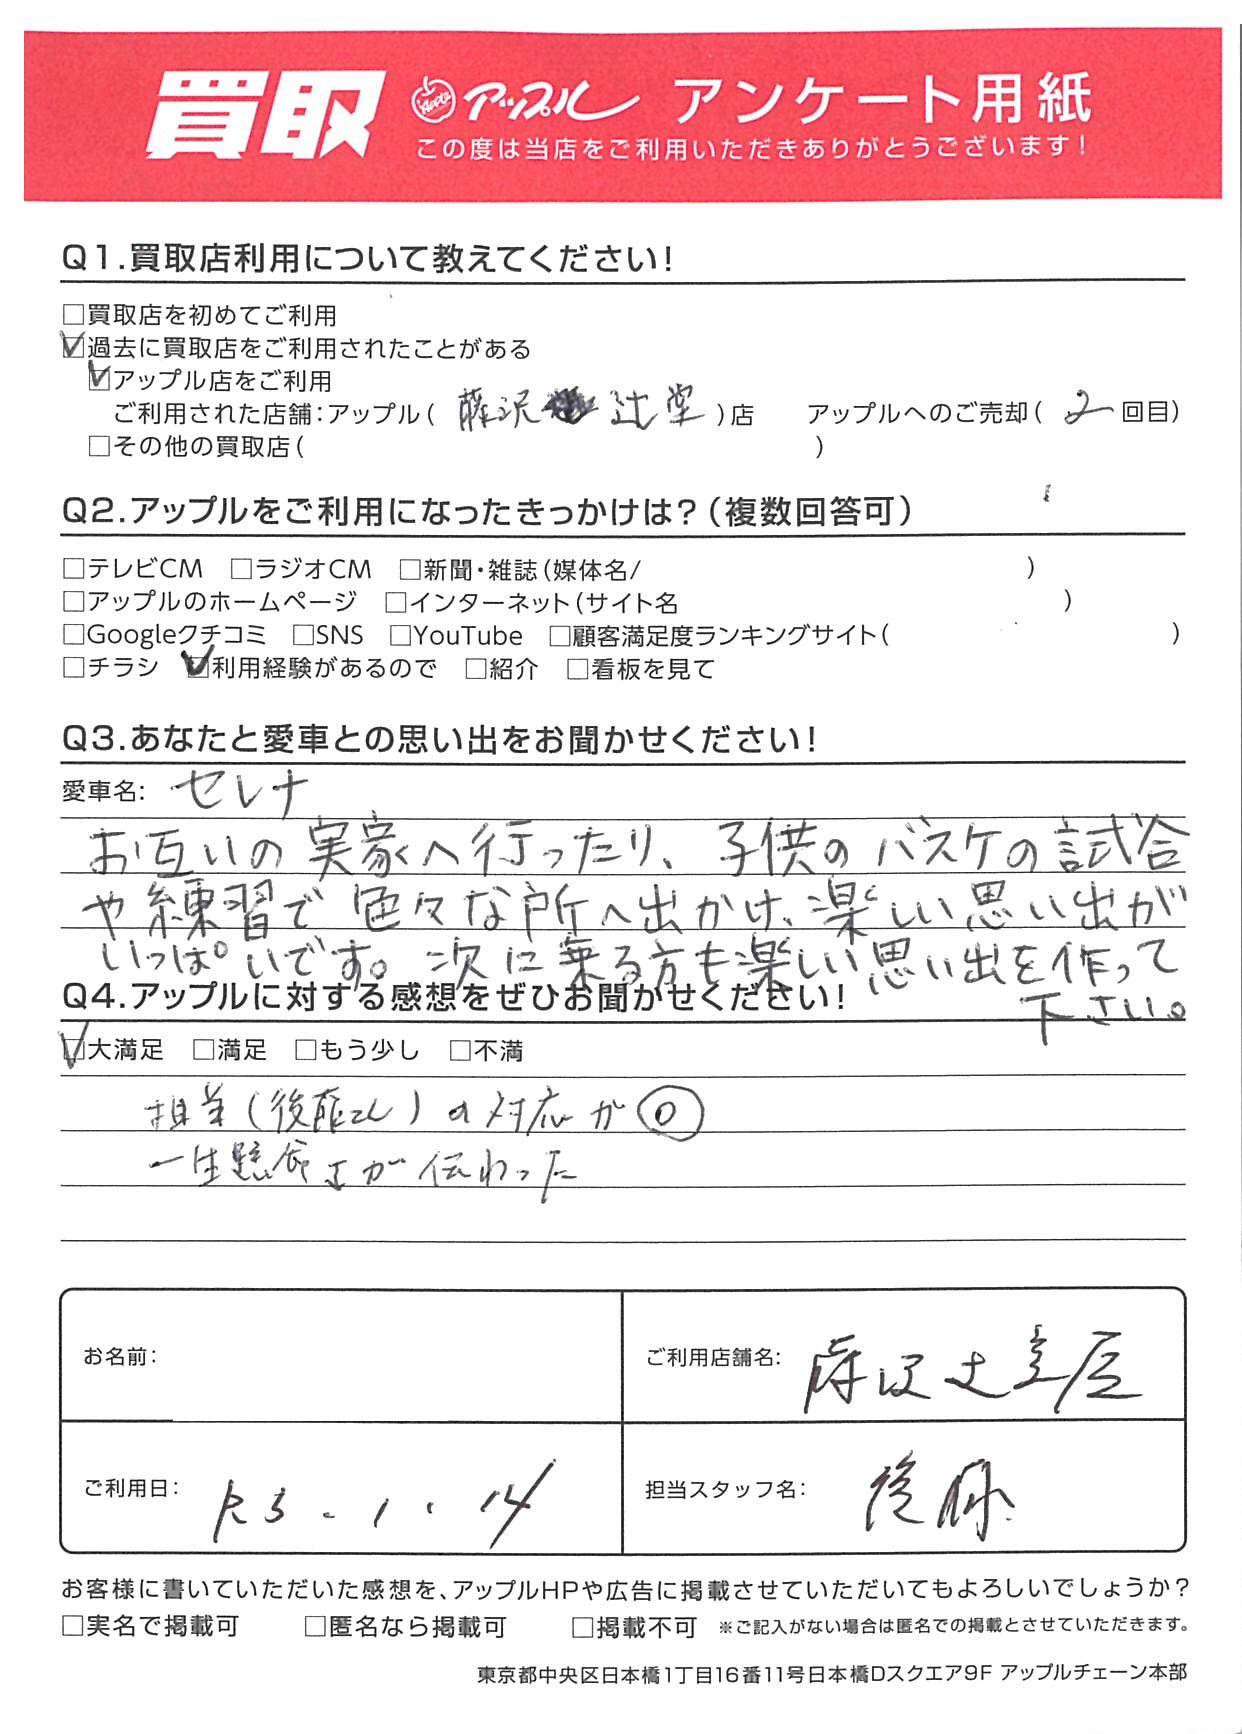 買取 アップル アンケート用紙
この度は当店をご利用いただきありがとうございます!
Q1.買取店利用について教えてください!
□買取店を初めてご利用
☑過去に買取店をご利用されたことがある
☑アップル店をご利用
ご利用された店舗:アップル( 藤沢 辻堂 )店 アップルへのご売却( 2 回目)
□その他の買取店( )
Q2.アップルをご利用になったきっかけは?(複数回答可)
□テレビCM □ラジオCM □新聞・雑誌(媒体名/ )
□アップルのホームページ □インターネット(サイト名 )
□Googleクチコミ □SNS □YouTube □顧客満足度ランキングサイト( )
□チラシ ☑利用経験があるので □紹介 □看板を見て
Q3.あなたと愛車との思い出をお聞かせください!
愛車名: セレナ
お互いの実家へ行ったり、子供のバスケの試合
や練習で色々な所へ出かけ、楽しい思い出が
いっぱいです。次に乗る方も楽しい思い出を作って
下さい。
Q4.アップルに対する感想をぜひお聞かせください!
☑大満足 □満足 □もう少し □不満
担当(後藤さん)の対応が◎
一生懸命さが伝わった
お名前: ご利用店舗名: 藤沢辻堂店
ご利用日: R5.1.14 担当スタッフ名: 後藤
お客様に書いていただいた感想を、アップルHPや広告に掲載させていただいてもよろしいでしょうか?
□実名で掲載可 □匿名なら掲載可 □掲載不可 ※ご記入がない場合は匿名での掲載とさせていただきます。
東京都中央区日本橋1丁目16番11号日本橋Dスクエア9F アップルチェーン本部